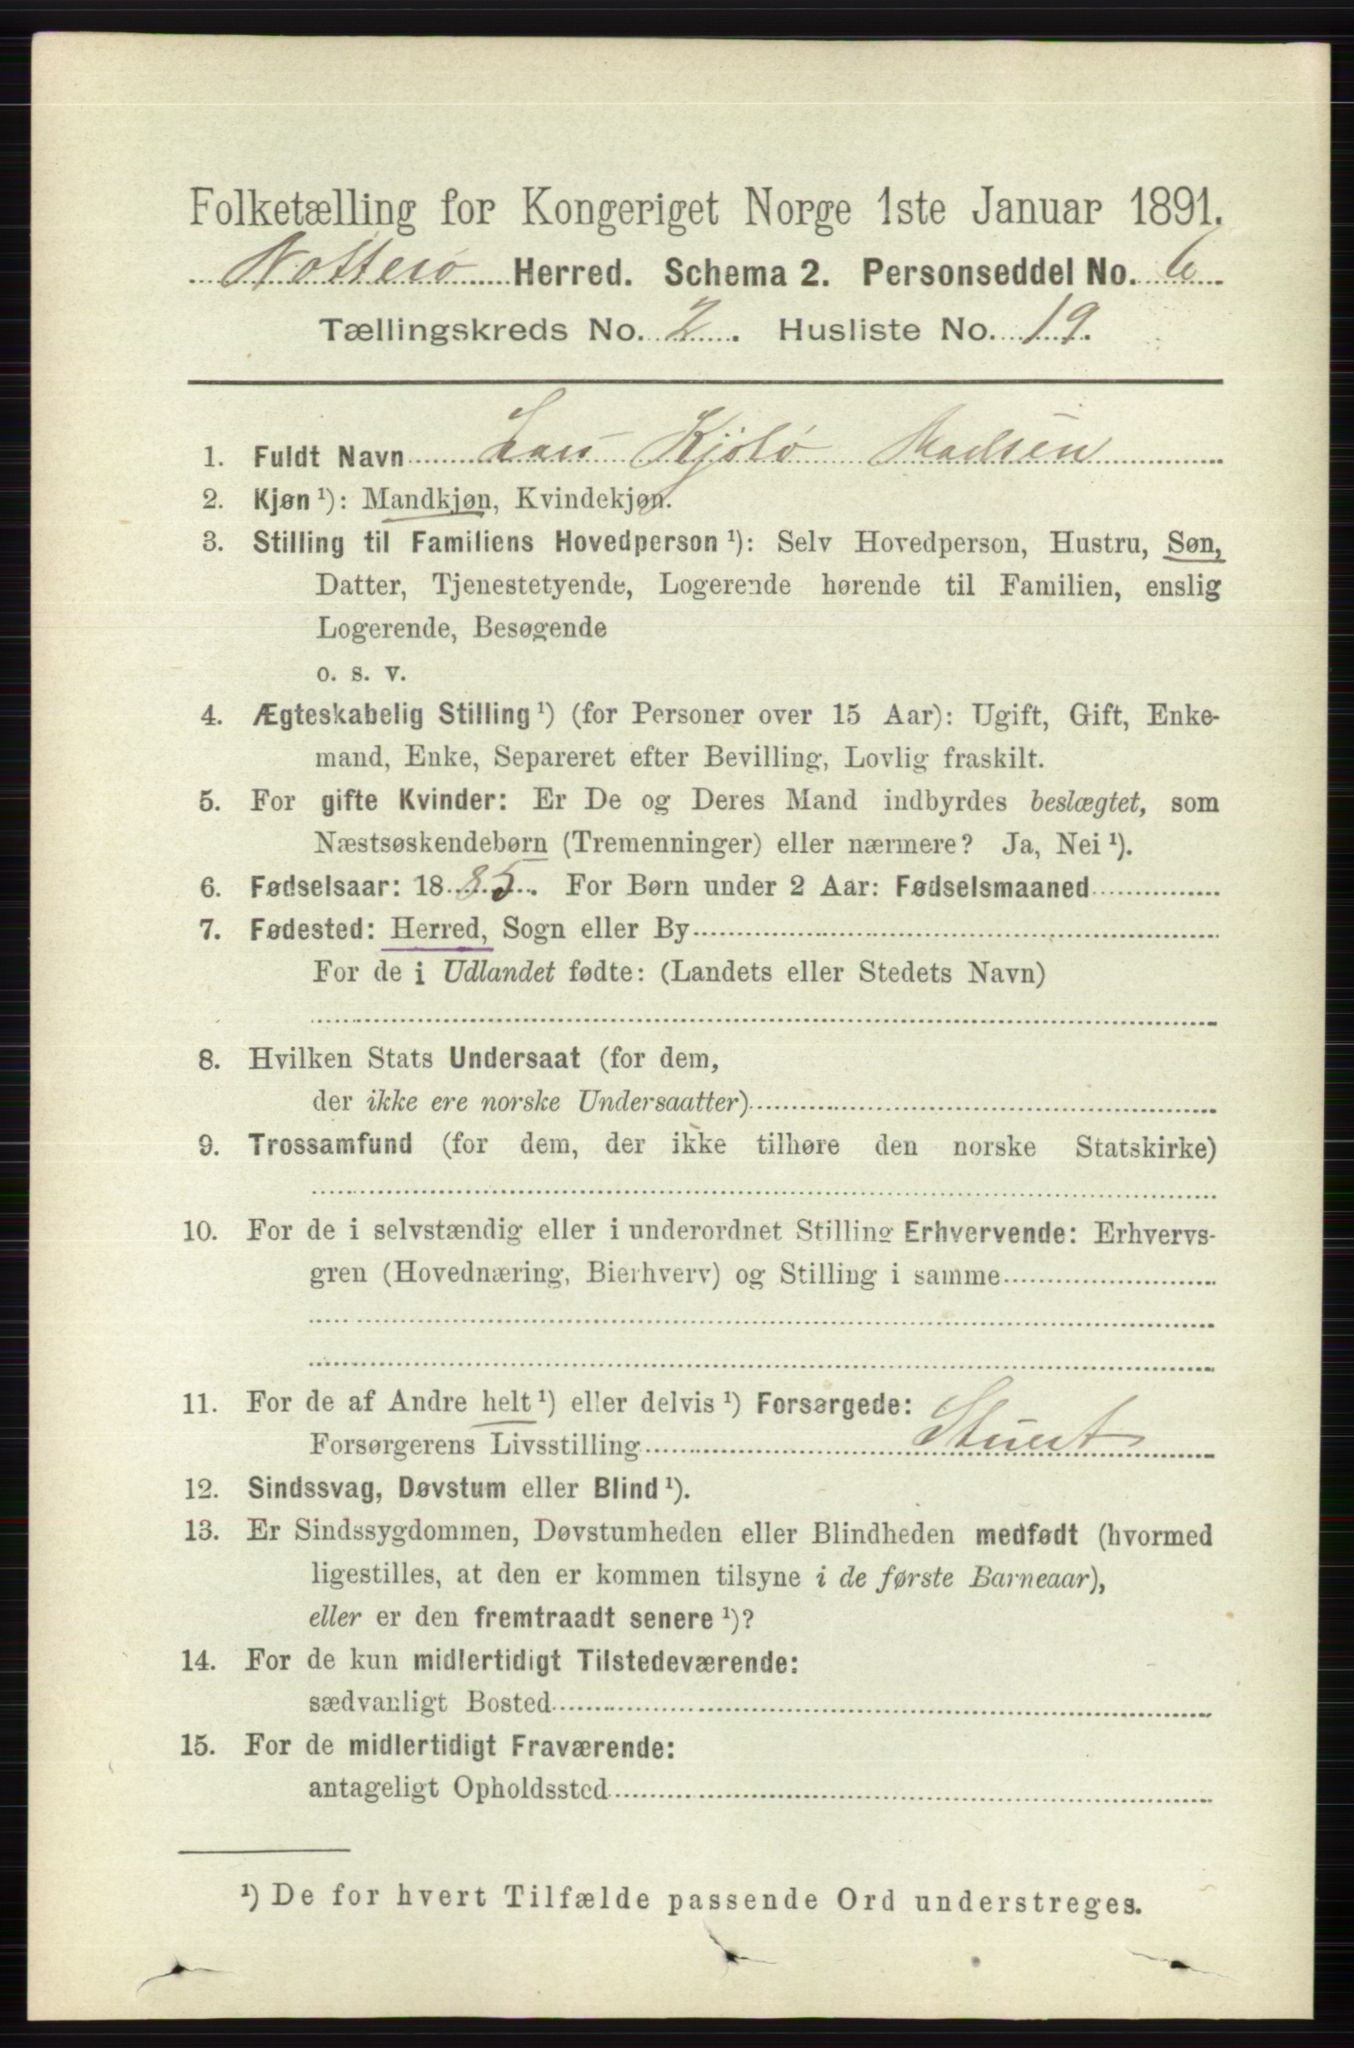 Folketælling for Kongeriget Norge 1ste Januar 1891.
Nøtterø Herred. Schema 2. Personseddel No. 6
Tællingskreds No. 2. Husliste No. 19.
1. Fuldt Navn Lars Kjølø Madsen
2. Kjøn ¹): Mandkjøn, Kvindekjøn.
3. Stilling til Familiens Hovedperson ¹): Selv Hovedperson, Hustru, Søn,
Datter, Tjenestetyende, Logerende hørende til Familien, enslig
Logerende, Besøgende
o. s. v.
4. Ægteskabelig Stilling ¹) (for Personer over 15 Aar): Ugift, Gift, Enke-
mand, Enke, Separeret efter Bevilling, Lovlig fraskilt.
5. For gifte Kvinder: Er De og Deres Mand indbyrdes beslægtet, som
Næstsøskendebørn (Tremenninger) eller nærmere? Ja, Nei ¹).
6. Fødselsaar: 1885. For Børn under 2 Aar: Fødselsmaaned
7. Fødested: Herred, Sogn eller By
For de i Udlandet fødte: (Landets eller Stedets Navn)
8. Hvilken Stats Undersaat (for dem,
der ikke ere norske Undersaatter)
9. Trossamfund (for dem, der ikke tilhøre den norske Statskirke)
10. For de i selvstændig eller i underordnet Stilling Erhvervende: Erhvervs-
gren (Hovednæring, Bierhverv) og Stilling i samme
11. For de af Andre helt ¹) eller delvis ¹) Forsørgede:
Forsørgerens Livsstilling Stuert
12. Sindssvag, Døvstum eller Blind ¹).
13. Er Sindssygdommen, Døvstumheden eller Blindheden medfødt (hvormed
ligestilles, at den er kommen tilsyne i de første Barneaar),
eller er den fremtraadt senere ¹)?
14. For de kun midlertidigt Tilstedeværende:
sædvanligt Bosted
15. For de midlertidigt Fraværende:
antageligt Opholdssted
¹) De for hvert Tilfælde passende Ord understreges.